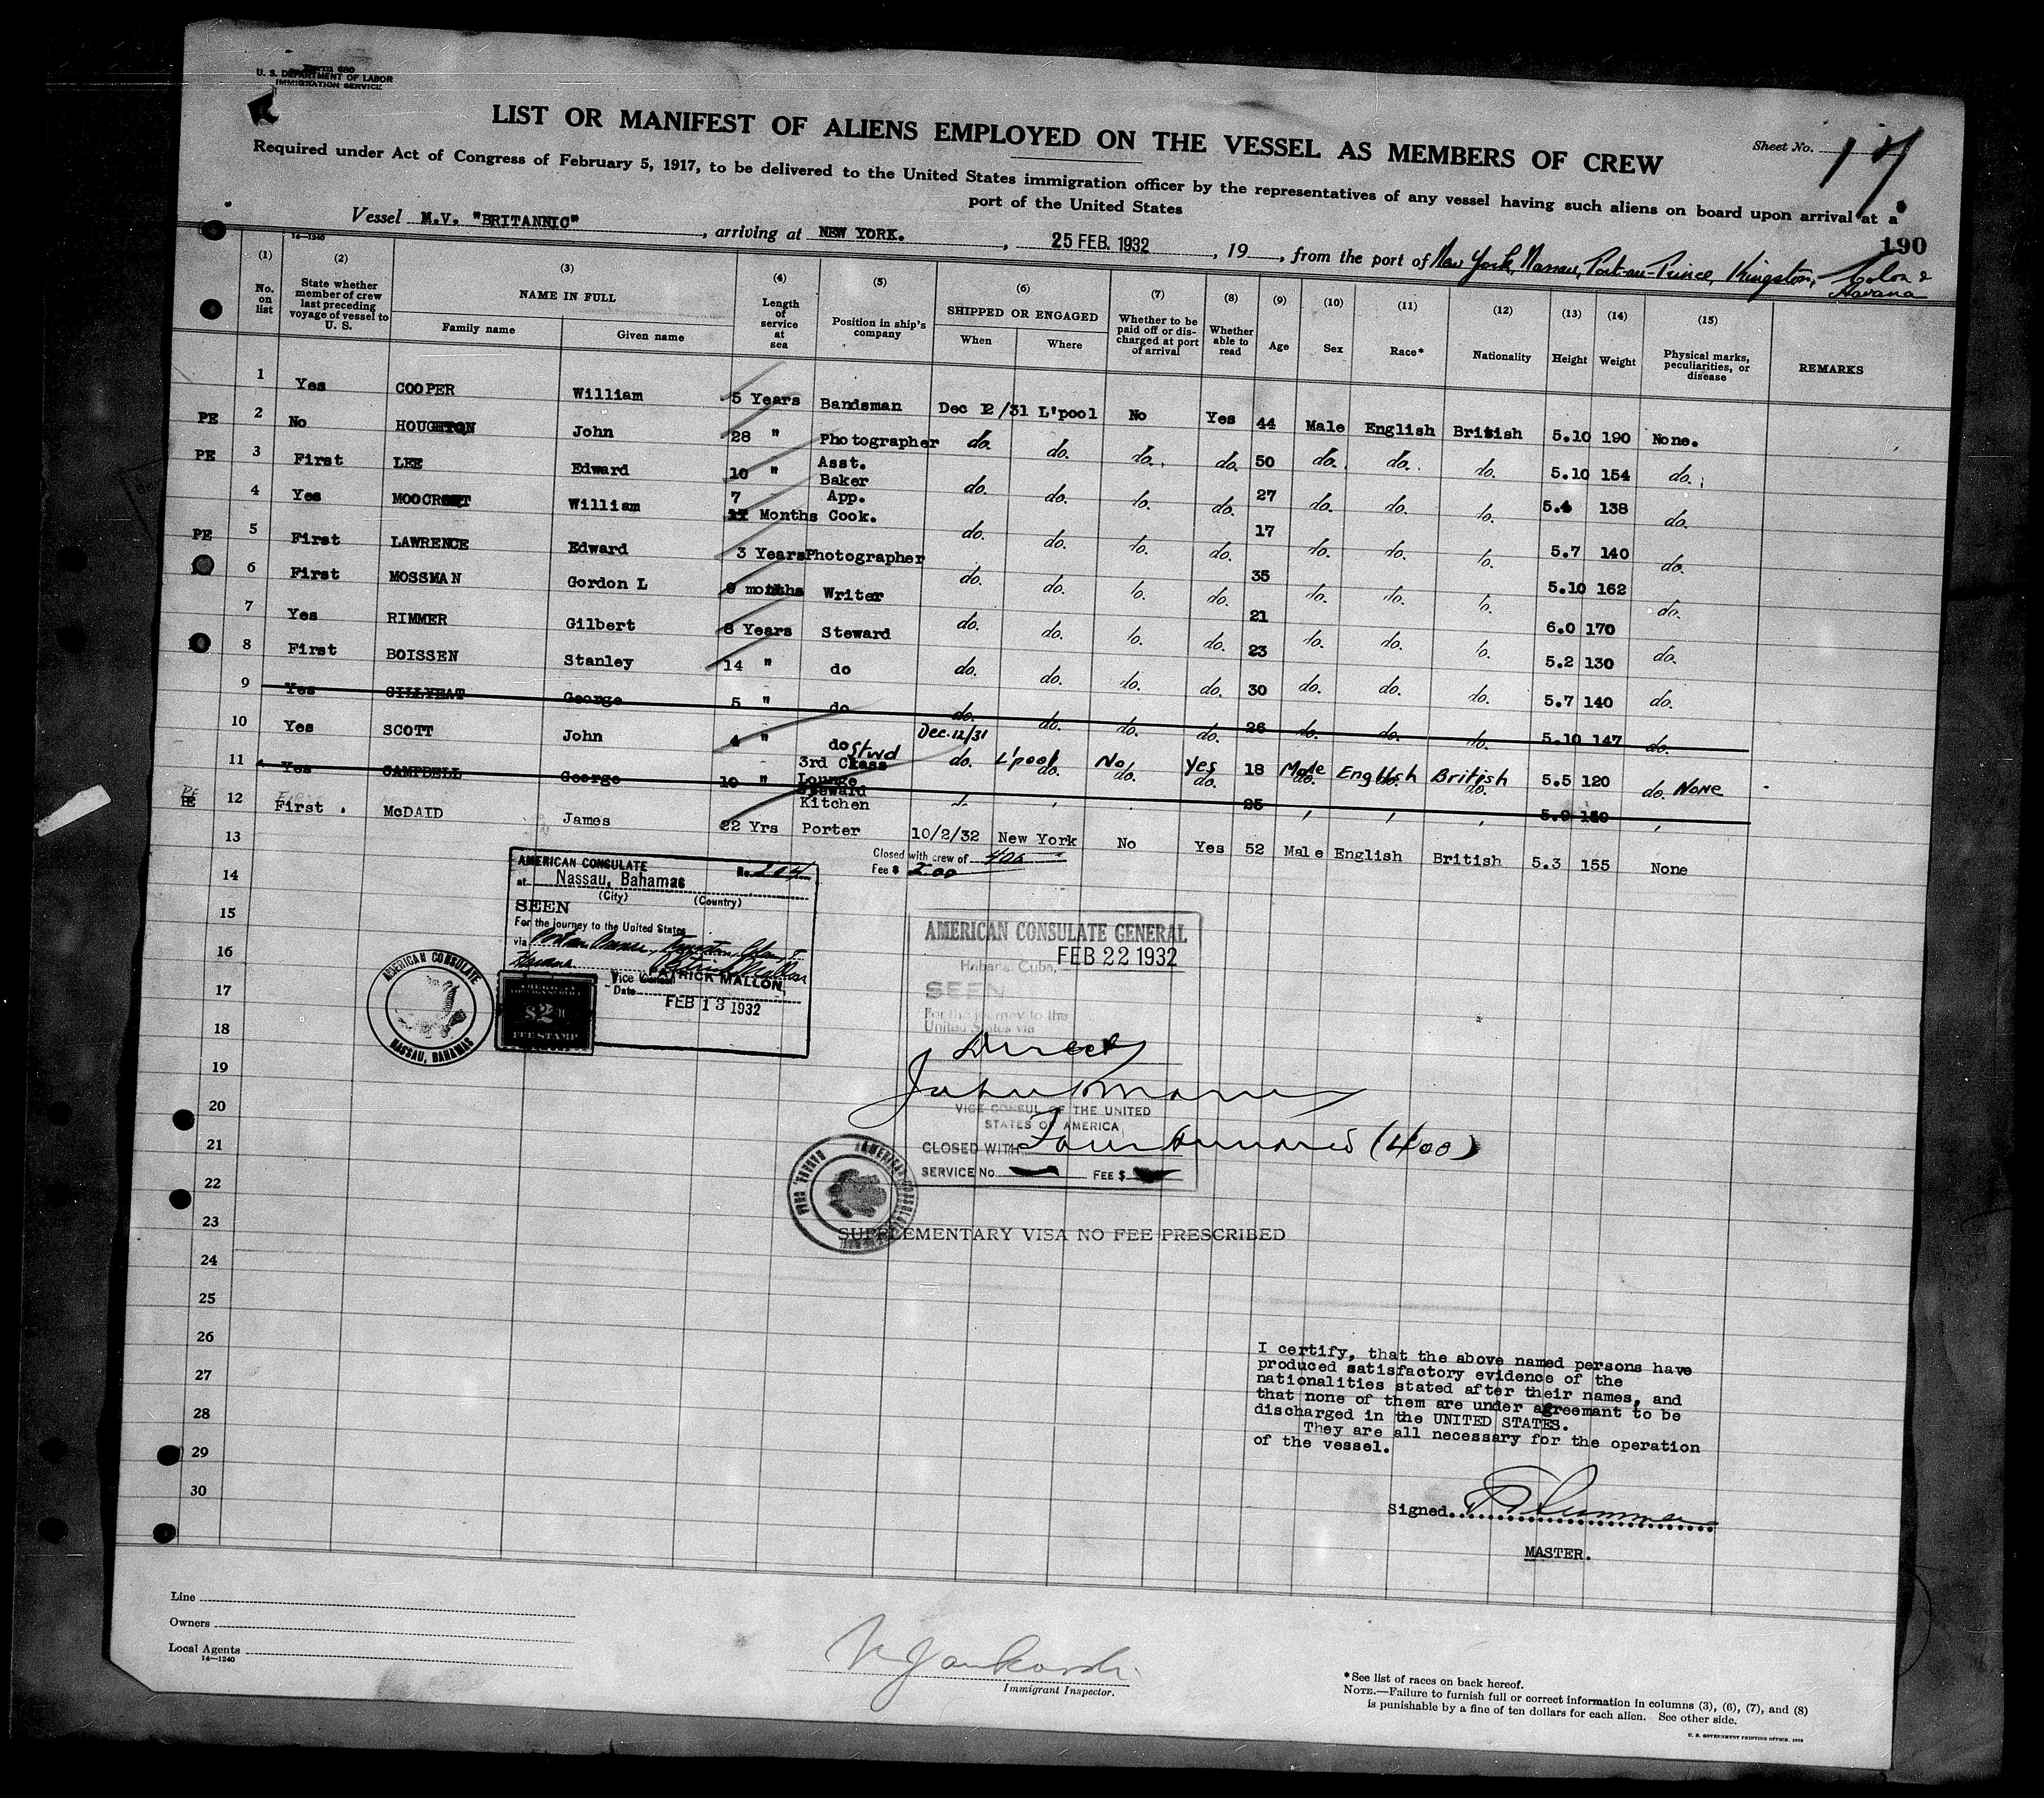 Form 680
U. S. DEPARTMENT OF LABOR
IMMIGRATION SERVICE
LIST OR MANIFEST OF ALIENS EMPLOYED ON THE VESSEL AS MEMBERS OF CREW
Sheet No. 17.
Required under Act of Congress of February 5, 1917, to be delivered to the United States immigration officer by the representatives of any vessel having such aliens on board upon arrival at a
port of the United States
190
Vessel M.V. "BRITANNIC", arriving at NEW YORK., 25 FEB. 1932, 19, from the port of New York, Nassau, Port-au-Prince, Kingston, Colon &
Havana
14—1240
(1) (2) (3) (4) (5) (6) (7) (8) (9) (10) (11) (12) (13) (14) (15)
No. on list
State whether member of crew last preceding voyage of vessel to U. S.
NAME IN FULL
Family name Given name
Length of service at sea
Position in ship's company
SHIPPED OR ENGAGED
When Where
Whether to be paid off or discharged at port of arrival
Whether able to read
Age Sex Race* Nationality Height Weight
Physical marks, peculiarities, or disease
REMARKS
1 Yes COOPER William 5 Years Bandsman Dec 12/31 L'pool No Yes 44 Male English British 5.10 190 None.
PE 2 No HOUGHTON John 28 " Photographer do. do. do. do. 50 do. do. do. 5.10 154 do.
PE 3 First LEE Edward 10 " Asst. Baker do. do. do. do. 27 do. do. do. 5.4 138 do.
4 Yes William 7 Months App. Cook. do. do. do. do. 17 do. do. do. 5.7 140 do.
PE 5 First LAWRENCE Edward 3 Years Photographer do. do. do. do. 35 do. do. do. 5.10 162 do.
6 First MOSSMAN Gordon L 9 months Writer do. do. do. do. 21 do. do. do. 6.0 170 do.
7 Yes RIMMER Gilbert 8 Years Steward do. do. do. do. 23 do. do. do. 5.2 130 do.
8 First BOISSEN Stanley 14 " do do. do. do. do. 30 do. do. do. 5.7 140 do.
9 Yes GILLYEAT George 5 " do do. do. do. do. 26 do. do. do. 5.10 147 do.
10 Yes SCOTT John 4 " do Stwd Dec. 12/31 do. L'pool do. No do. Yes do. 18 Male do. English do. British do. 5.5 120 do. None
11 Yes CAMPBELL George 10 " 3rd Class Lounge Steward 25
PE 12 First McDAID James 22 Yrs Kitchen Porter 10/2/32 New York No Yes 52 Male English British 5.3 155 None
13
Closed with crew of 406
Fee $ 2.00
14
15
16
17
18
19
20
21
22
23
24
25
26
27
28
29
30
AMERICAN CONSULATE No. 204
at Nassau, Bahamas
(City) (Country)
SEEN
For the journey to the United States
via Port au Prince, Kingston, Colon, &
Havana
PATRICK MALLON
Vice Consul
Date FEB 13 1932
AMERICAN CONSULATE
NASSAU, BAHAMAS
$2
FEE STAMP
AMERICAN CONSULATE GENERAL
FEB 22 1932
Habana, Cuba,
SEEN
For the journey to the
United States via
Direct
VICE CONSUL OF THE UNITED
STATES OF AMERICA
CLOSED WITH Four Hundred (400)
SERVICE No. FEE $
AMERICAN CONSULATE GENERAL
HABANA, CUBA
SUPPLEMENTARY VISA NO FEE PRESCRIBED
I certify, that the above named persons have
produced satisfactory evidence of the
nationalities stated after their names, and
that none of them are under agreemant to be
discharged in the UNITED STATES.
They are all necessary for the operation
of the vessel.
Signed
MASTER.
Line
Owners
Local Agents
14—1240
Immigrant Inspector.
*See list of races on back hereof.
NOTE.—Failure to furnish full or correct information in columns (3), (6), (7), and (8)
is punishable by a fine of ten dollars for each alien. See other side.
U. S. GOVERNMENT PRINTING OFFICE